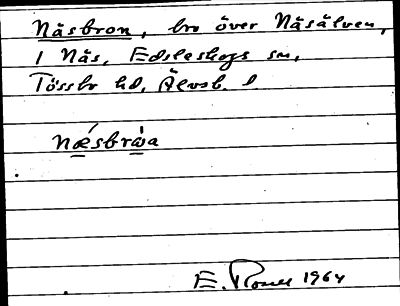 Näsbron, bro över Näsälven,
i Näs, Edsleskogs sn,
Tössbo hd, Älvsb. l
næ´sbròa
E. 1964